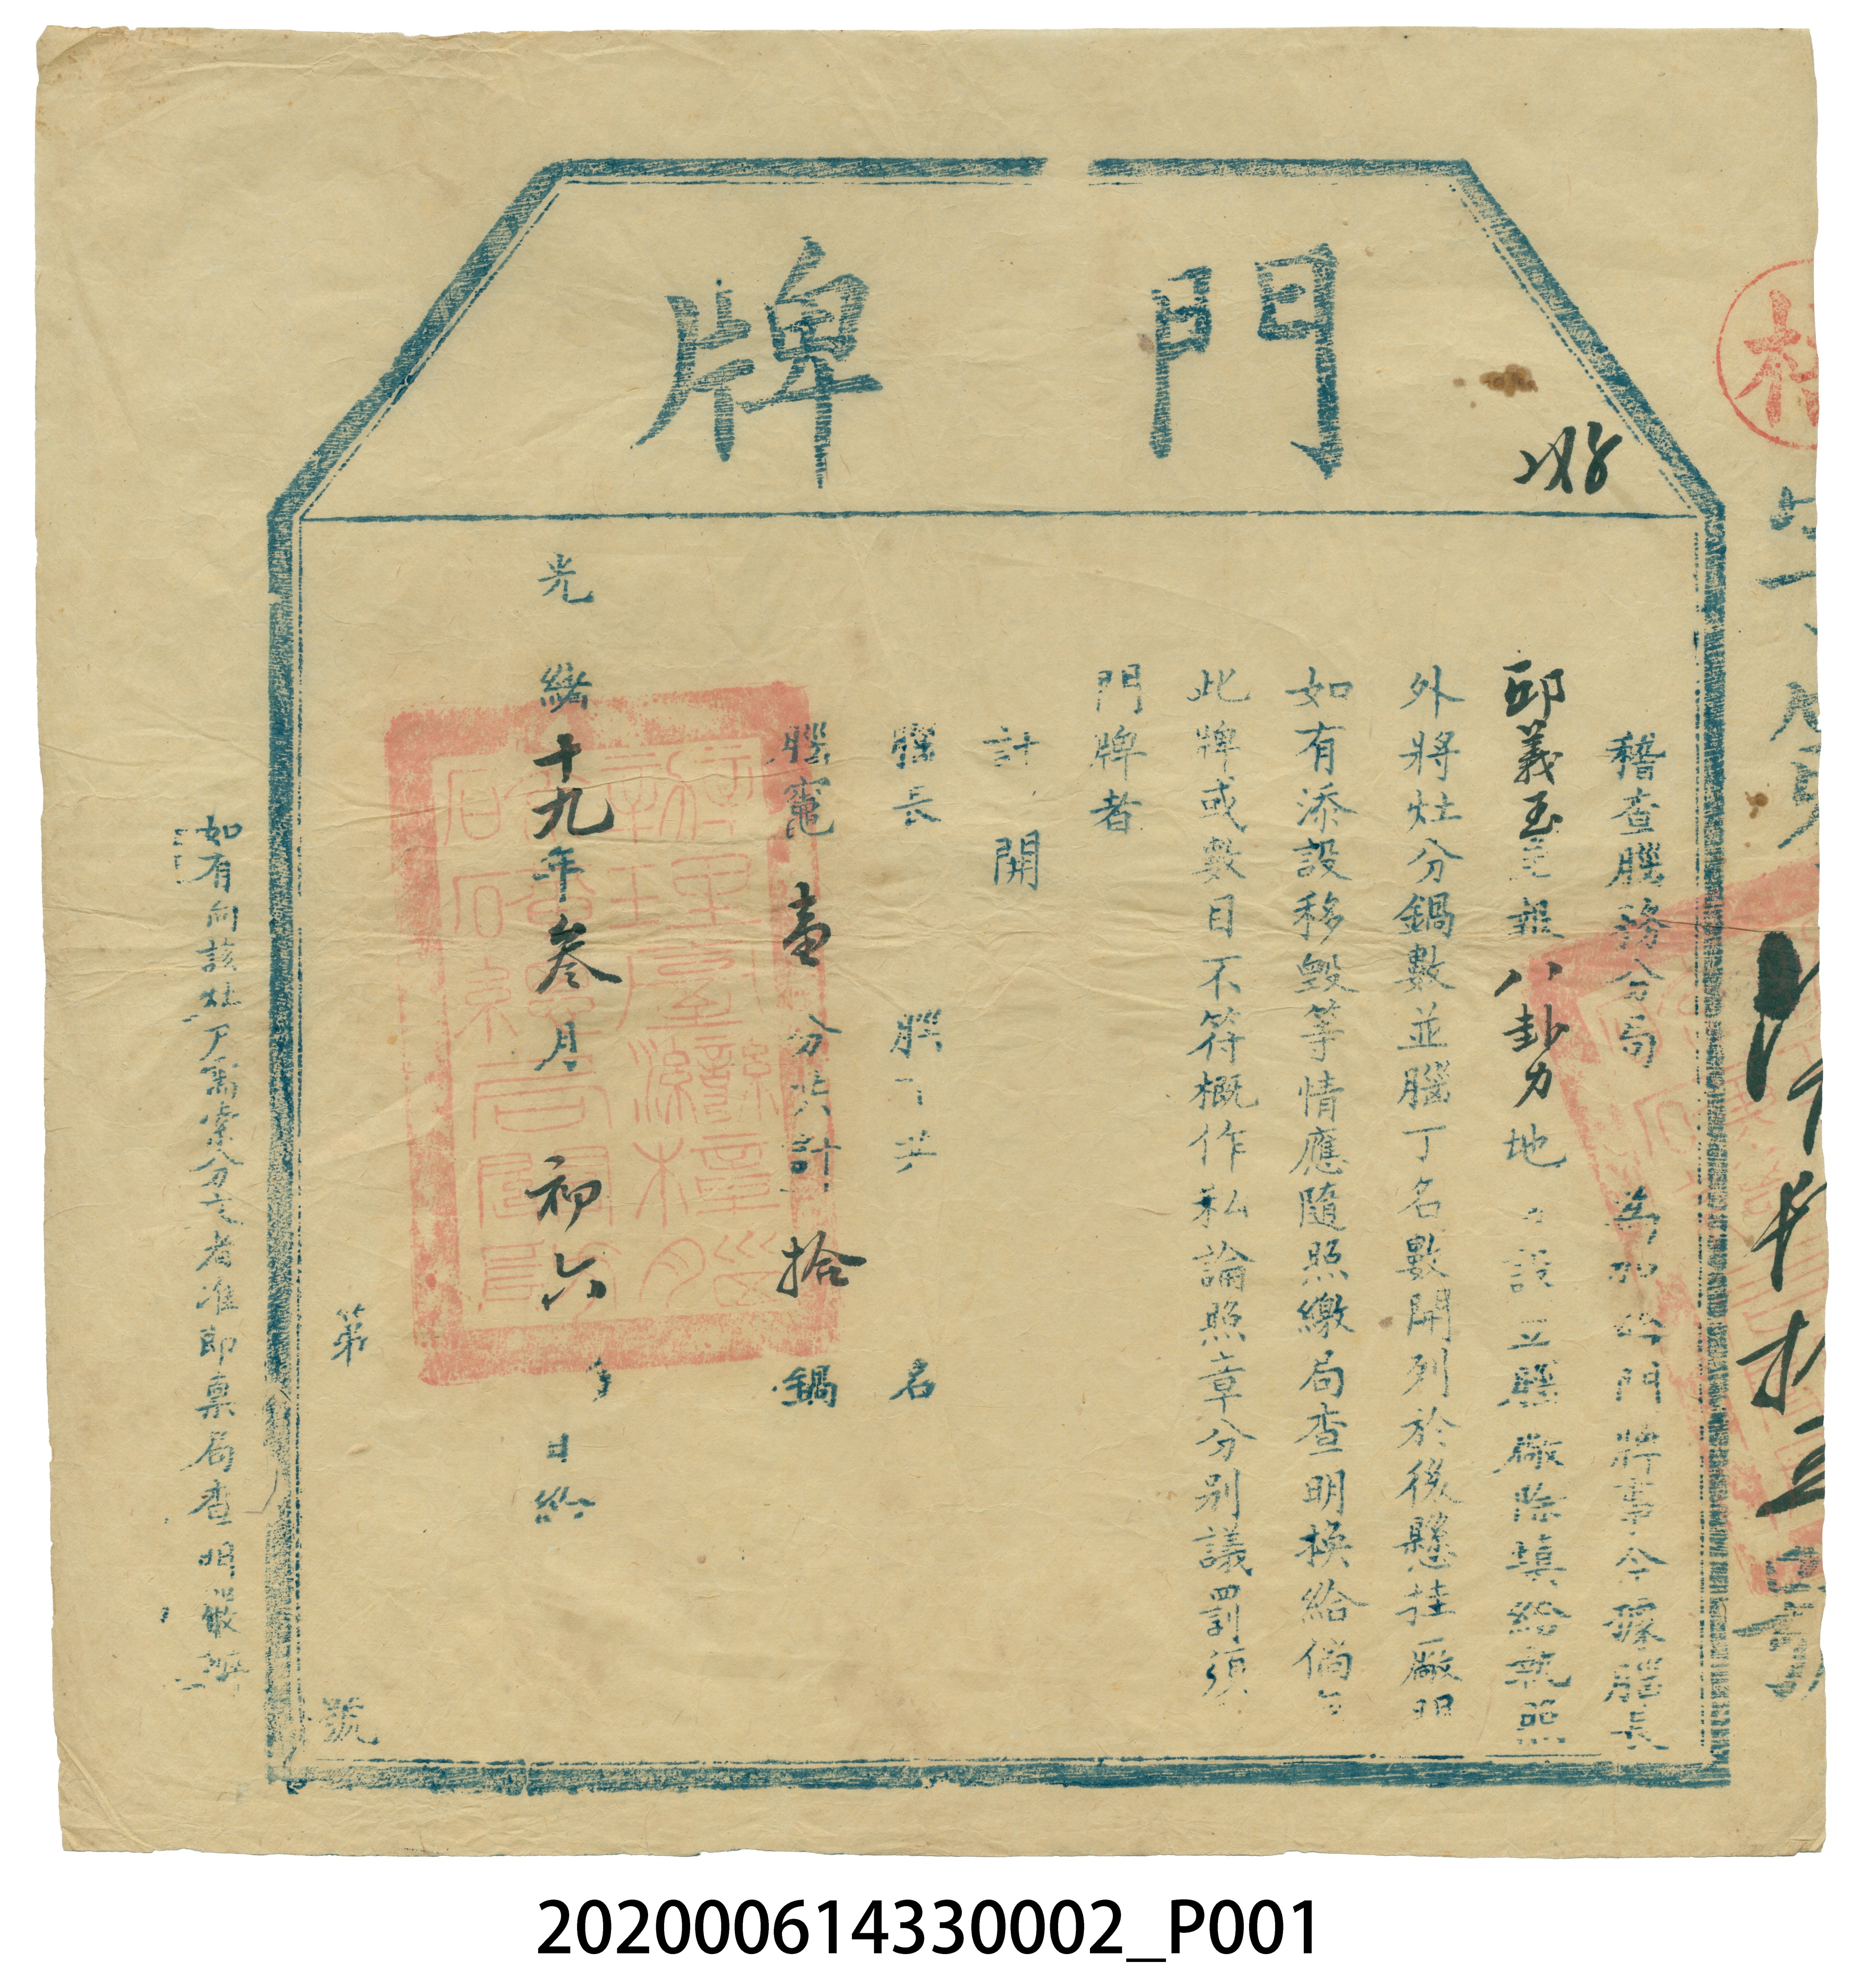 門牌
稽查腦務分局 為加給門牌事今據腦長
邱義玉呈報八卦力地 設立腦廠除填給執照
外將灶分鍋數並腦丁名數開列於後懸挂廠
如有添設移毀等情應隨照繳局查明換給倘
此牌或數目不符概作私論照章分別議罰須
門牌者
計開
腦長 腦丁共 名
腦竈壹分共計拾鍋
光緒十九年叁月初六日給
第 號
如有向該灶戶需索分文者准即稟局查明嚴辦
202000614330002_P001